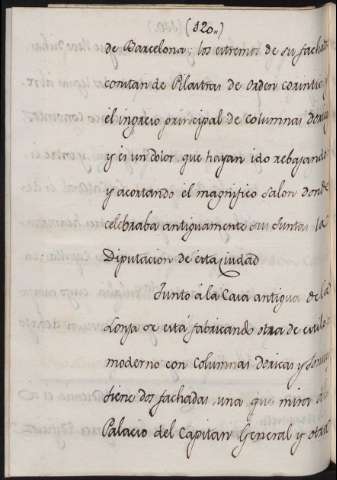 (120.)
de Barcelona; los extremos de su fachada
constan de Pilastras de orden corintio, y
el ingreso principal de columnas doricas
y es un dolor que hayan ido rebajando
y acortando el magnifico Salon donde
celebraba antiguamente sus Juntas la
Diputacion de esta Ciudad
Junto à la Casa antigua de la
Lonja se está fabricando otra de estilo
moderno con Columnas doricas y
tiene dos fachadas una que mira al
Palacio del Capitan General y otra